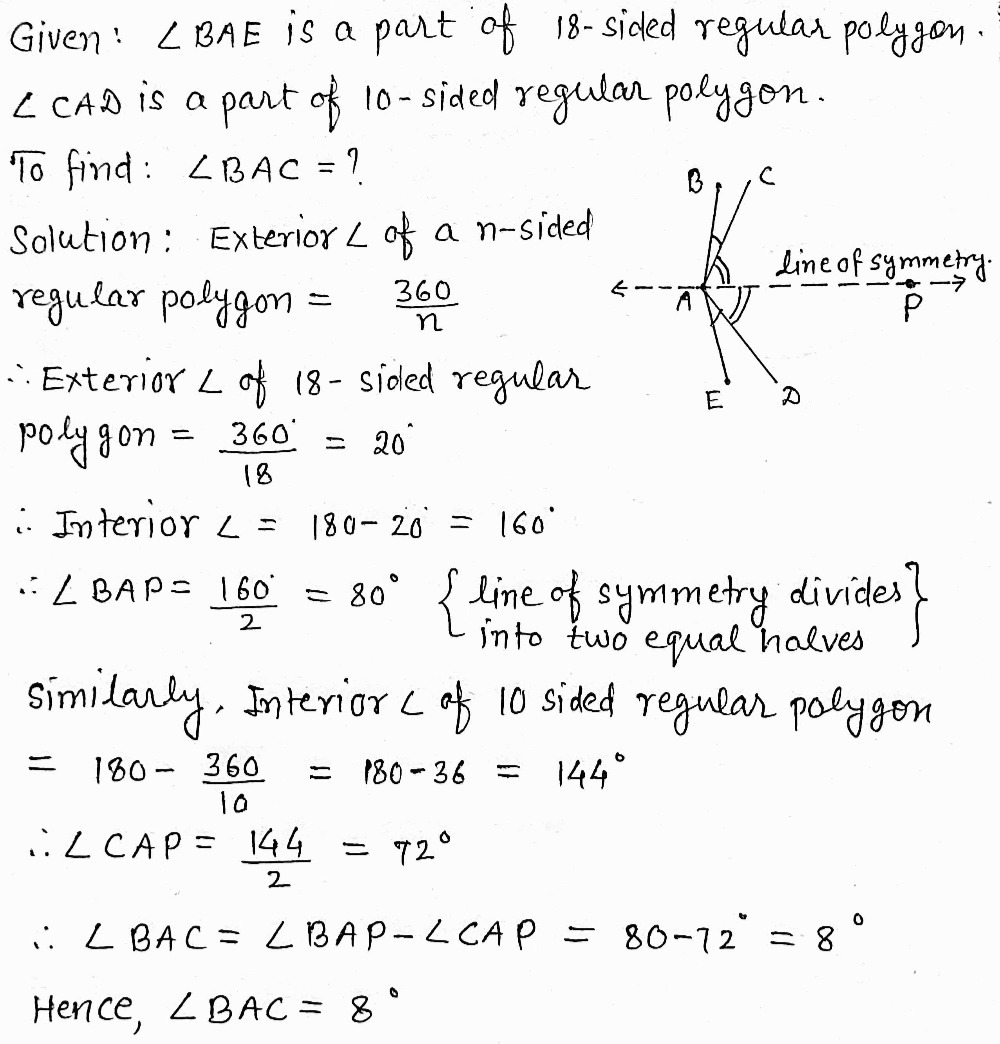 Given: ∠BAE is a part of 18-sided regular polygon.
∠CAD is a part of 10-sided regular polygon.
To find: ∠BAC = ?
B C
Solution: Exterior ∠ of a n-sided
line of symmetry.
regular polygon = 360/n
A P
∴ Exterior ∠ of 18-sided regular
E D
polygon = 360°/18 = 20°
∴ Interior ∠ = 180-20° = 160°
∴ ∠BAP = 160°/2 = 80° {line of symmetry divides
into two equal halves}
Similarly, Interior ∠ of 10 sided regular polygon
= 180 - 360/10 = 180-36 = 144°
∴ ∠CAP = 144/2 = 72°
∴ ∠BAC = ∠BAP-∠CAP = 80-72° = 8°
Hence, ∠BAC = 8°